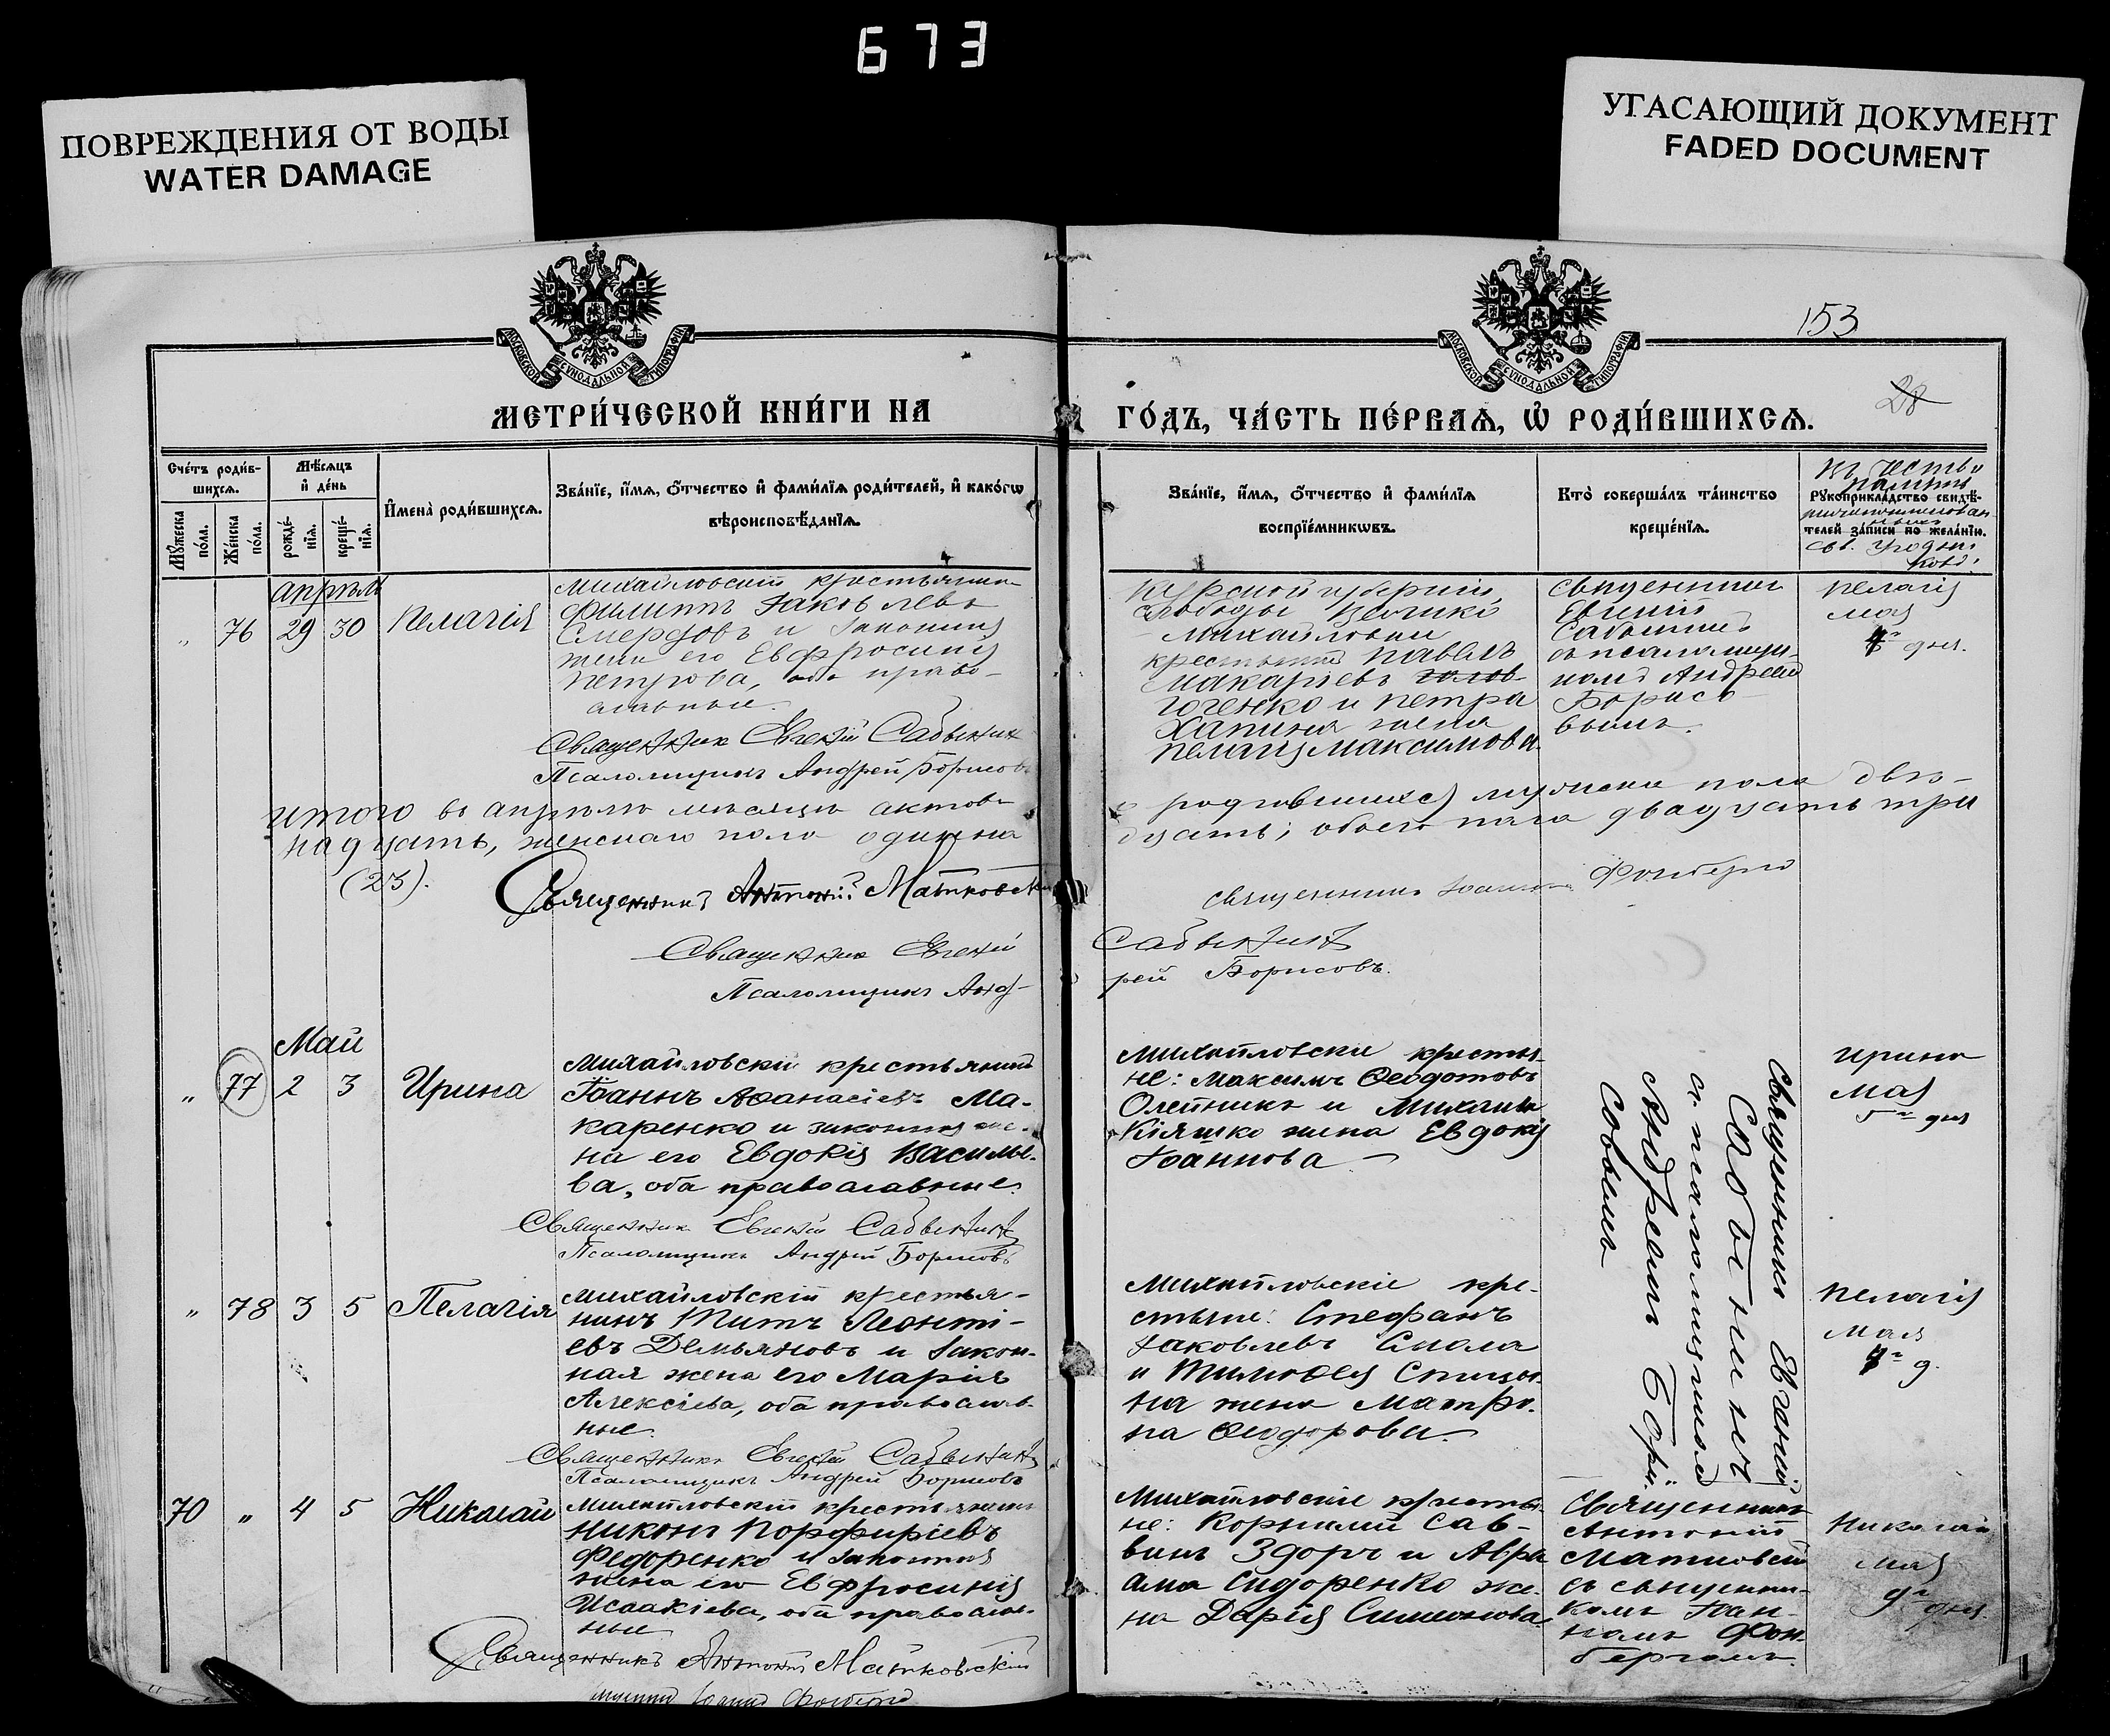 673
ПОВРЕЖДЕНИЯ ОТ ВОДЫ
WATER DAMAGE
УГАСАЮЩИЙ ДОКУМЕНТ
FADED DOCUMENT
МОСКОВСКОЙ СУНОДАЛЬНОЙ ТИПОГРАФІИ
МОСКОВСКОЙ СУНОДАЛЬНОЙ ТИПОГРАФІИ
153
28
МЕТРИ́ЧЕСКОЙ КНИ́ГИ НА
ГО́ДЪ, ЧА́СТЬ ПЕ́РВАѦ, Ѡ҆ РОДИ́ВШИХСѦ.
Сче́тъ роди́в-
шихсѧ.
Мꙋ́жеска по́ла.
Же́нска по́ла.
Мѣ́сѧцъ
и҆ де́нь
рожде́-
нїѧ.
креще́-
нїѧ.
И҆мена̀ роди́вшихсѧ.
Зва́нїе, и҆́мѧ, ѻ҆́тчество и҆ фами́лїѧ роди́телей, и҆ како́гѡ
вѣроисповѣ́данїѧ.
Зва́нїе, и҆́мѧ, ѻ҆́тчество и҆ фами́лїѧ
воспрїе́мникѡвъ.
Кто̀ соверша́лъ та́инство
креще́нїѧ.
Рꙋкоприкла́дство свидѣ́-
телей за́писи по жела́нїю.
въ честь и
память
св. угодни
ковъ.
апрѣль
" 76 29 30 Пелагія
Михайловскій крестьянин
Филиппъ Іаковлевъ
Смердовъ и законная
жена его Евфросинія
Петрова, оба право-
славные.
Священник Евгений Сабынин
Псаломщикъ Андрей Борисовъ
Курской губерніи,
слободы Велико
Михайловки
крестьянинъ Павелъ
Макаріевъ
и Петра
Хапина жена
Пелагія Максимова
Священник
Евгеній
Сабынинъ
съ псаломщи-
комъ Андреемъ
Борисо-
вымъ.
Пелагія
мая
4го дня.
итого въ апрѣлѣ мѣсяцѣ актовъ
о родившихся мужска пола двѣ-
надцать, женскаго пола одинна
дцать; обоего пола двадцать три
(23).
Священникъ Антоній Матковскій
священникъ Іоаннъ Фонберго
Священник Евгений
Сабынинъ
Псаломщикъ Анд-
рей Борисовъ.
Май
" 77 2 3 Ирина
Михайловскій крестьянинъ
Іоаннъ Афанасіевъ Ма-
каренко и законная же-
на его Евдокія Василье-
ва, оба православные.
Священник Евгений Сабынинъ
Псаломщикъ Андрей Борисовъ
Михайловскіе крестья-
не: Максимъ Ѳеодотовъ
Олейникъ и Михаила
Кіяшко жена Евдокія
Іоаннова
Священникъ Евгеній
Сабынинъ
съ псаломщикомъ
Андреемъ Бори-
совымъ
Ирина
Мая
5го дня
" 78 3 5 Пелагія
Михайловскій крестья-
нинъ Титъ Леонті-
евъ Демьяновъ и закон-
ная жена его Марія
Алексіева, оба православ-
ные.
Священникъ Евгений Сабынинъ
Псаломщикъ Андрей Борисовъ
Михайловскіе кре-
стьяне: Стефанъ
Іаковлевъ
и Тимоѳея Спицы-
на жена Матро-
на Ѳеодорова.
Пелагія
Мая
4го д.
70 " 4 5 Николай
Михайловскій крестьянинъ
Никонъ Порфиріевъ
Федоренко и законная
жена его Евфросинія
Исаакіева, оба православ-
ные
Священникъ Антоній Матковскій
Михайловскіе крестья-
не: Корнилій Сав-
винъ Здоръ и Авра
ама Сидоренко же-
на Дарія Симеонова.
Священникъ
Антоній
Матковскій
съ священни-
комъ Іоан-
номъ Фон-
бергомъ.
Николай
мая
9го дня